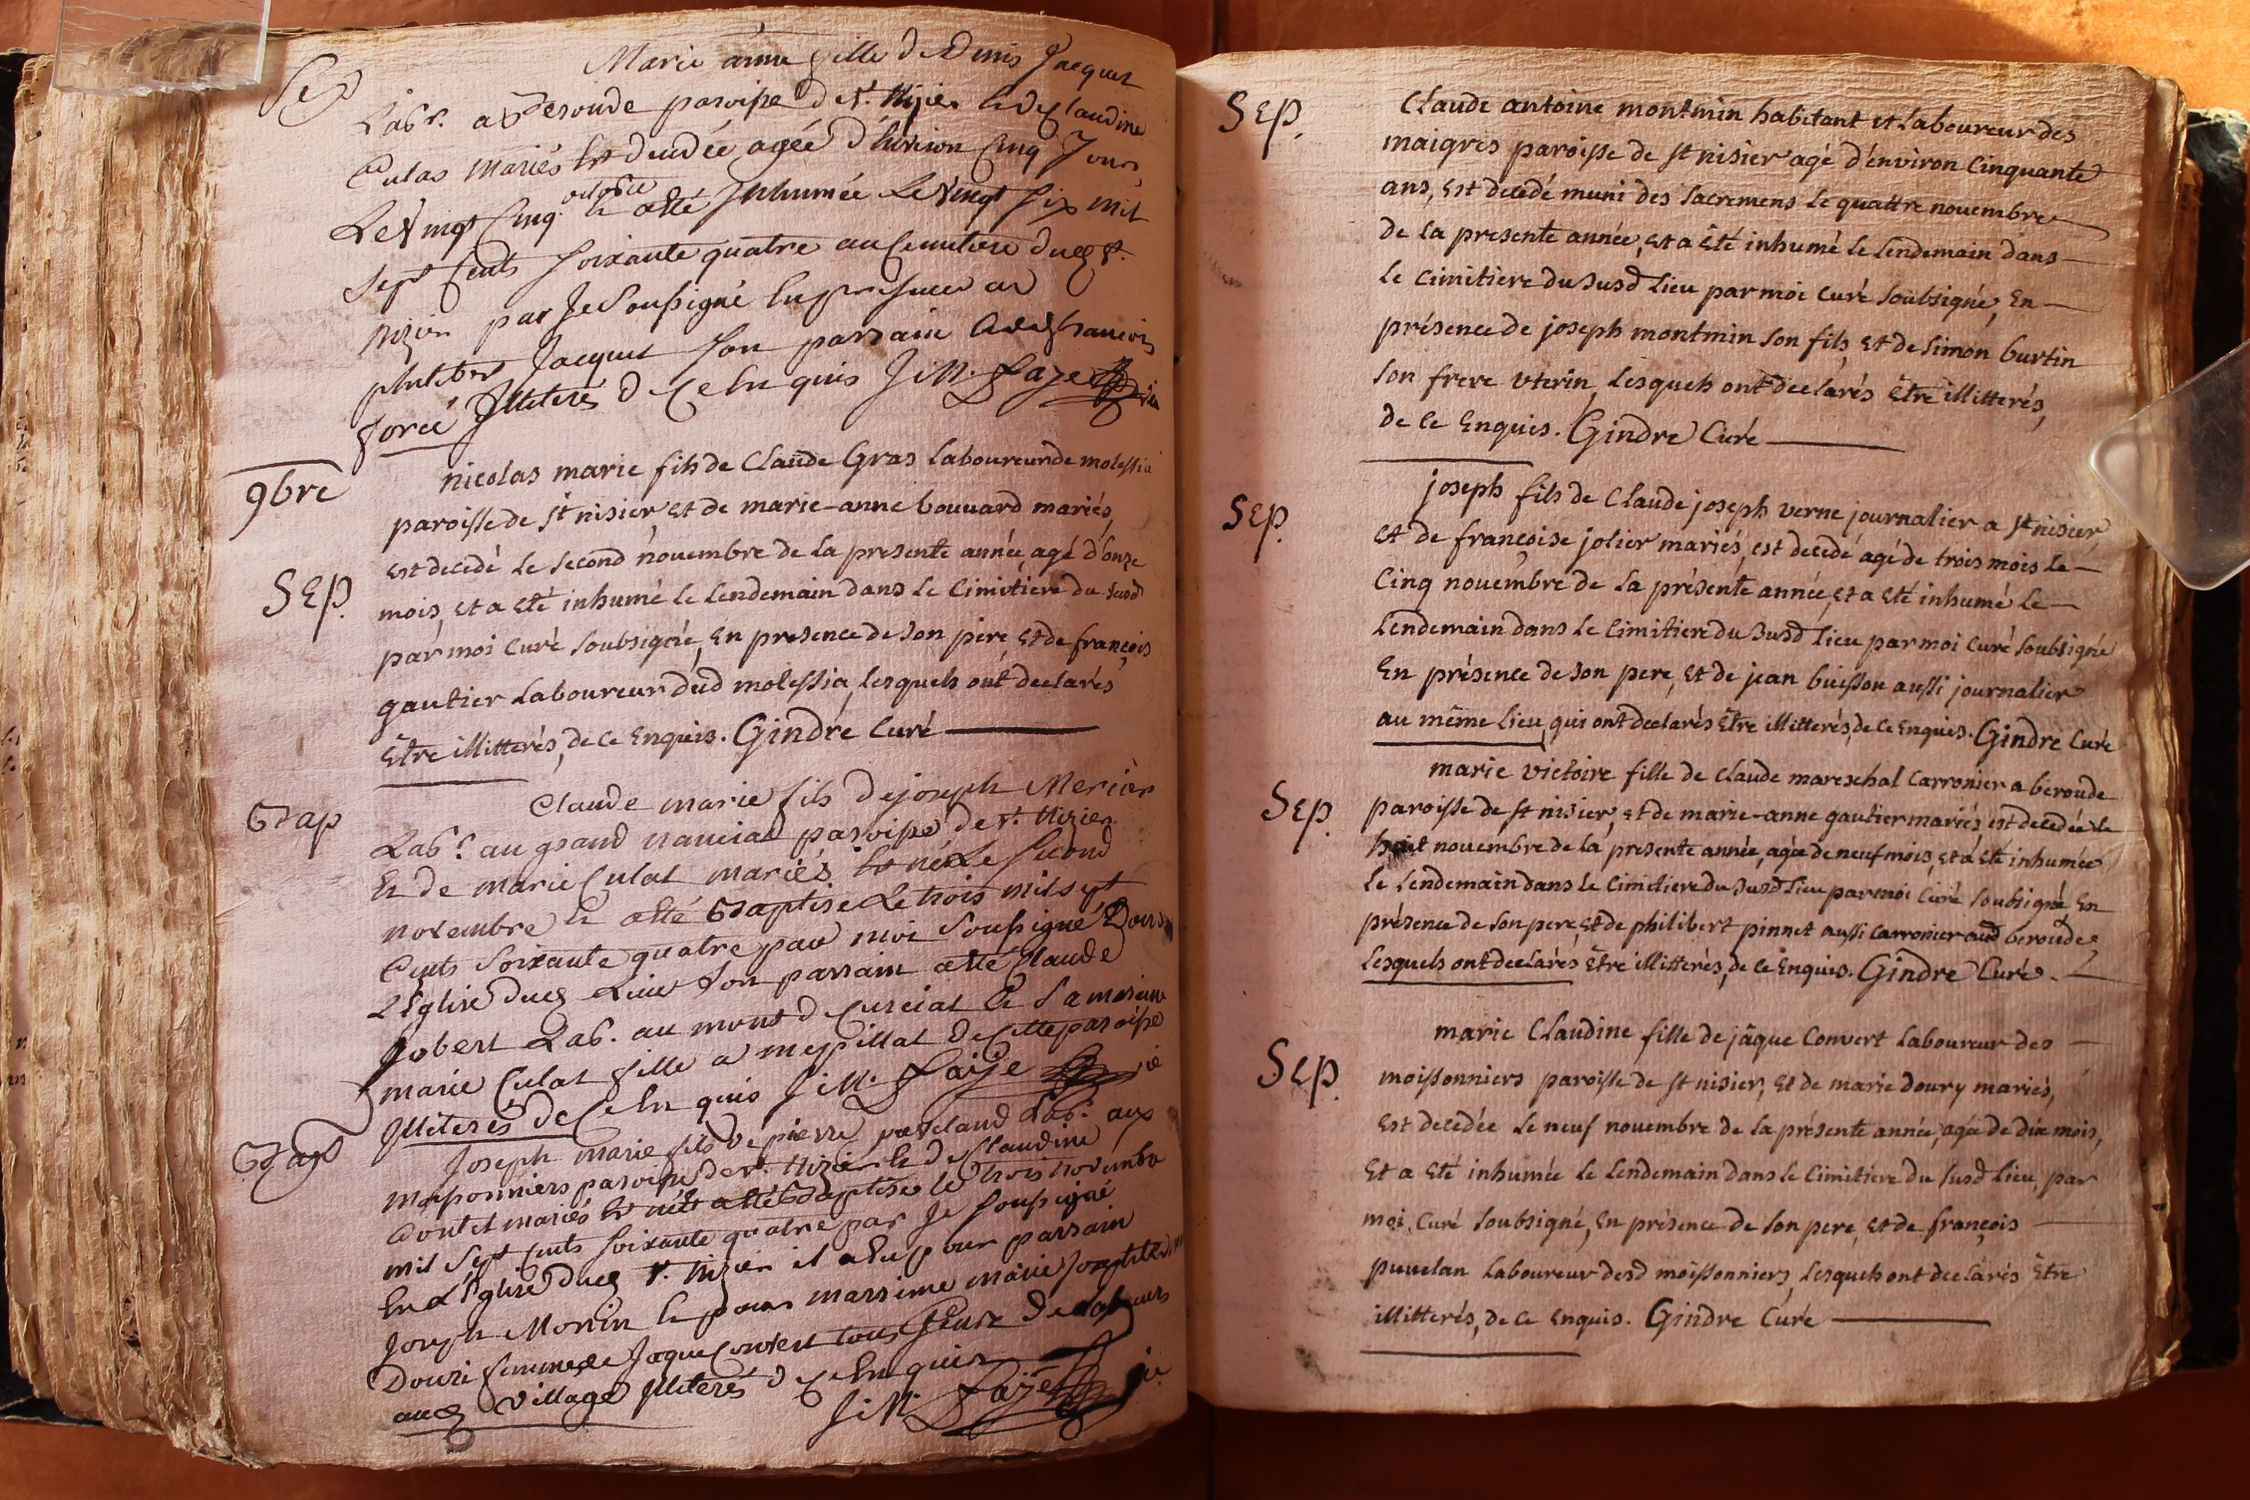 Sep
Marie anne fille de Denis Jacquet
Labr. a Beroude paroisse de st. Nizier et de Claudine
Culas mariés est decedée agée d'environ Cinq Jours
Le vingt Cinq octobre et a Eté Inhumée Le vingt six mil
sept Cents soixante quatre au Cemitiere dud st.
nizier par Je Soussigné En presence de
philibert Jacquet son parrain et de francois
forié Illiterés de Ce En quis J: M. Faye
9bre
Sep.
nicolas marie fils de Claude Gras laboureur de molessia
paroisse de st nisier, et de marie-anne bouvard mariés,
est decedé le second novembre de la presente année, agé d'onze
mois, et a eté inhumé le lendemain dans le Cimitiere du susd
par moi Curé soubsigné, en presence de son pere, et de françois
gautier Laboureur dud molessia, lesquels ont declarés
être illitterés, de ce enquis. Gindre Curé
Bap
Claude marie fils de joseph Mercier
Labr. au grand nanciat paroisse de st. Nizier
Et de marie Culat mariés Est né Le second
novembre Et a Eté Baptisé Le trois mil sept
Cents Soixante quatre par moi Soussigné Dans
L'Eglise dud Lieu son parrain a Eté Claude
Jobert Lab. au mont de Curciat Et La maraine
marie Culat fille a mespillat de cette paroisse
Illiterés de Ce En quis J: M. Faye
Bap
Joseph marie fils de pierre puveland Labr. aux
moissonniers paroisse de st. Nizier Et de Claudine
Contet mariés Est né Et a Eté Baptisé le trois novembre
mil Sept Cents soixante quatre par Je soussigné
En L'Eglise dud st. Nizier il a Eu pour parrain
Joseph Morin Et pour marraine marie Josephte
Douri femme de Jaque Convert tous Deux Laboureurs
aud village Illiterés de Ce En quis
J: M. Faye
Sep.
Claude antoine montmin habitant et Laboureur des
maigres paroisse de st nisier agé d'environ Cinquante
ans, est decedé muni des sacremens le quattre novembre
de la presente année, et a êté inhumé le lendemain dans
le Cimitiere du susd lieu par moi Curé soubsigné, En
présence de joseph montmin son fils, et de simon burtin
son frere uterin, lesquels ont declarés être illitterés,
de ce enquis. Gindre Curé
Sep.
joseph fils de Claude joseph verne journalier a st nisier,
et de françoise jolier mariés, est decedé agé de trois mois le
Cinq novembre de la présente année, et a eté inhumé le
lendemain dans le Cimitiere du susd lieu par moi Curé soubsigné
En présence de son pere, et de jean buisson aussi journalier
au même lieu, qui ont declarés être illitterés, de ce enquis. Gindre Curé
Sep.
marie victoire fille de Claude mareschal Carronier a beroude
paroisse de st nisier, et de marie-anne gautier mariés, est decedée le
huit novembre de la presente année, agée de neuf mois, et a eté inhumée
le lendemain dans le Cimitiere du susd lieu par moi Curé soubsigné En
présence de son pere, et de philibert pinnet aussi Carronier aud beroude
lesquels ont declarés être illitterés, de ce enquis. Gindre Curé.
Sep.
marie Claudine fille de jâque Convert laboureur des
moissonniers paroisse de st nisier, et de marie doury mariés,
est decedée le neuf novembre de la présente année, agée de dix mois,
et a eté inhumée le lendemain dans le Cimitiere du susd lieu, par
moi Curé soubsigné, En présence de son pere, et de françois
puvelan laboureur desd moissonniers, lesquels ont declarés être
illitterés, de ce enquis. Gindre Curé